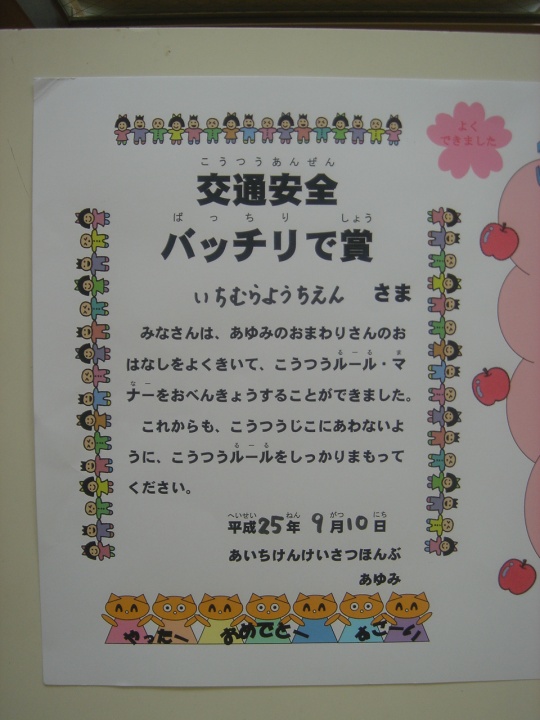 よく
できました
こうつうあんぜん
交通安全
ばっちり しょう
バッチリで賞
いちむらようちえん さま
みなさんは、あゆみのおまわりさんのお
はなしをよくきいて、こうつうルール・マ
るーる ま
ナーをおべんきょうすることができました。
なー
これからも、こうつうじこにあわないよ
うに、こうつうルールをしっかりまもって
るーる
ください。
へいせい ねん がつ にち
平成25年 9月10日
あいちけんけいさつほんぶ
あゆみ
やったー おめでとー すごーい